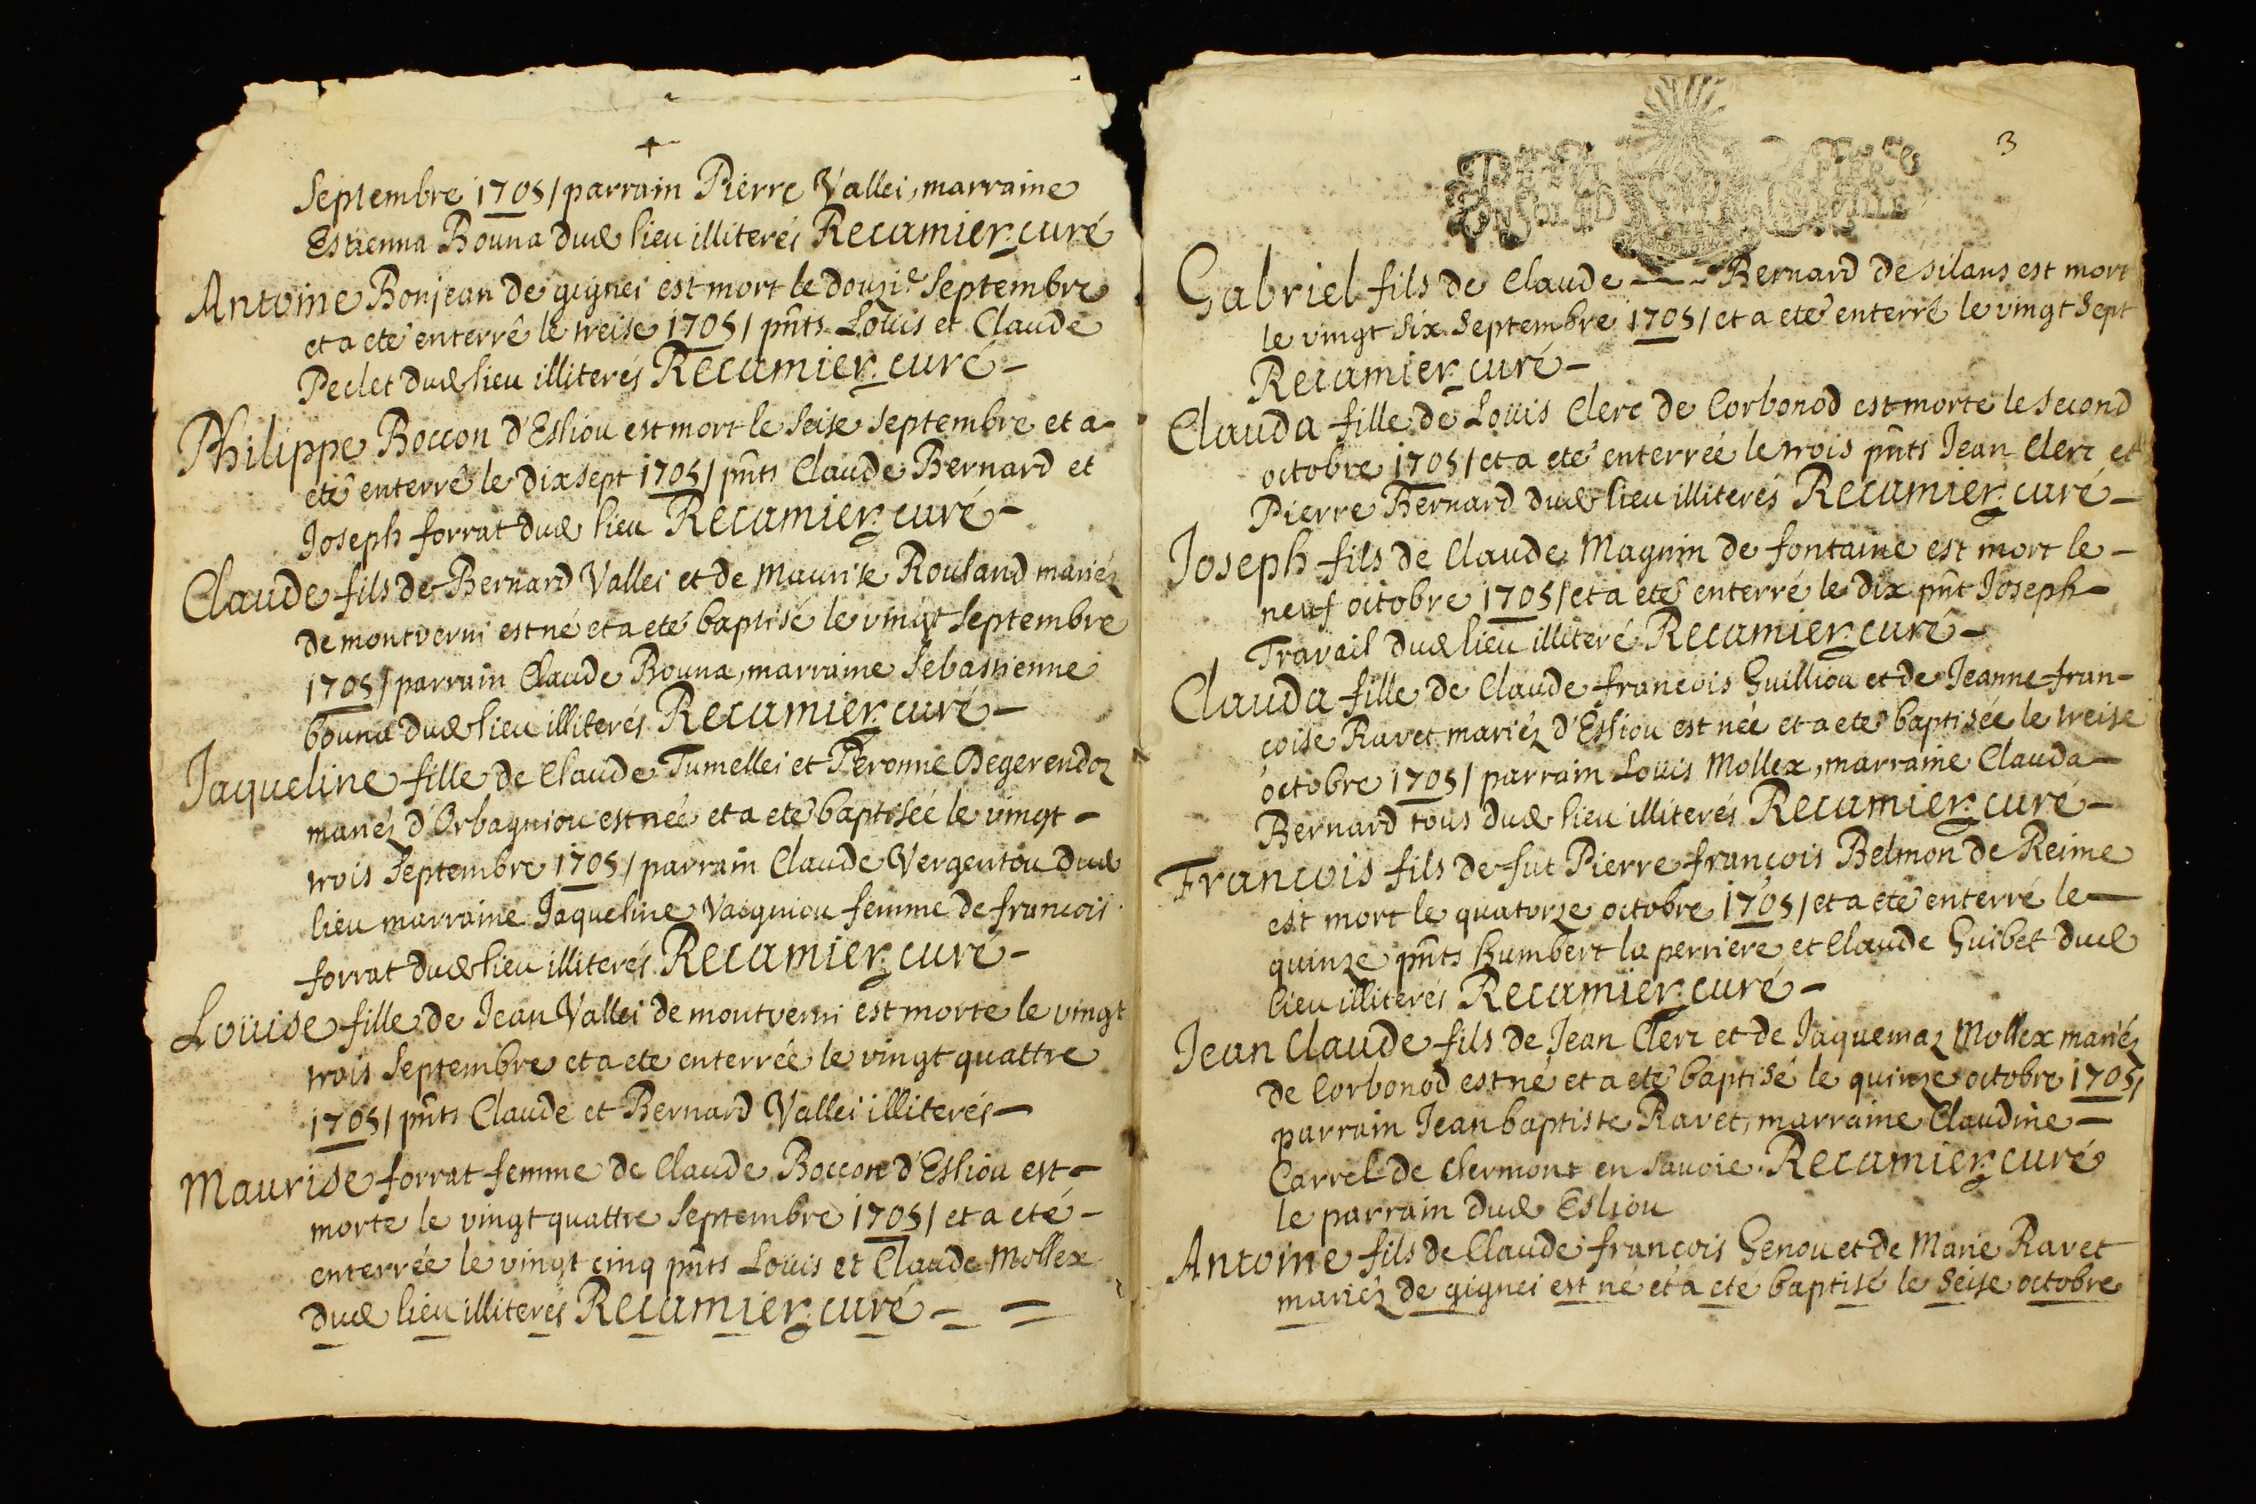 Septembre 1705/ parrain Pierre Vallei, marraine
Estienna Bouna dud lieu illiterés Recamier curé
Antoine Bonjean de gignei est mort le douzie Septembre
et a eté enterré le treise 1705/ pñts Loüis et Claude
Peclet dud lieu illiterés Recamier curé -
Philippe Boccon d'Esliou est mort le seise septembre et a
eté enterré le dix sept 1705/ pñts Claude Bernard et
Joseph forrat dud lieu Recamier curé -
Claude fils de Bernard Vallei et de Maurise Rouland mariéz
de montverni est né et a eté baptisé le vingt Septembre
1705/ parrain Claude Bouna, marraine Sebastienne
bouna dud lieu illiterés Recamier curé -
Jaqueline fille de Claude Tumellei et Peronne Degerendoz
mariéz d'Orbagniou est née et a eté baptisée le vingt -
trois Septembre 1705/ parrain Claude Vergentou dud
lieu marraine Jaqueline Vaigniou femme de francois
forrat dud lieu illiterés Recamier curé -
Loüise fille de Jean Vallei de montverni est morte le vingt
trois Septembre et a eté enterrée le vingt quattre
1705/ pñts Claude et Bernard Vallei illiterés -
Maurise forrat femme de Claude Boccon d'Esliou est -
morte le vingt quattre Septembre 1705/ et a eté -
enterrée le vingt cinq pñts Loüis et Claude Mollex
dud lieu illiterés Recamier curé - -
3
Gabriel fils de Claude - Bernard de silans est mort
le vingt six Septembre 1705/ et a eté enterré le vingt Sept
Recamier curé -
Clauda fille de Loüis Clerc de Corbonod est morte le second
octobre 1705/ et a eté enterrée le trois pñts Jean Clerc et
Pierre Bernard dud lieu illiterés Recamier curé -
Joseph fils de Claude Magnin de fontaine est mort le -
neuf octobre 1705/ et a eté enterré le dix pñt Joseph -
Travail dud lieu illiteré Recamier curé -
Clauda fille de Claude francois Guilliou et de Jeanne fran-
çoise Ravet mariéz d'Esliou est née et a eté baptisée le treise
octobre 1705/ parrain Louis Mollex, marraine Clauda -
Bernard tous dud lieu illiterés Recamier curé -
Francois fils de fut Pierre françois Belmon de Reime
est mort le quatorze octobre 1705/ et a eté enterré le -
quinze pñts humbert la perriere et Claude Guibet dud
lieu illiterés Recamier curé -
Jean Claude fils de Jean Clerc et de Jaquemaz Mollex mariéz
de Corbonod est né et a eté baptisé le quinze octobre 1705/
parrain Jean baptiste Ravet, marraine Claudine -
Carrel de Clermont en Savoie. Recamier curé
le parrain dud Esliou
Antoine fils de Claude françois Genou et de Marie Ravet
mariéz de gignei est né et a eté baptisé le seise octobre